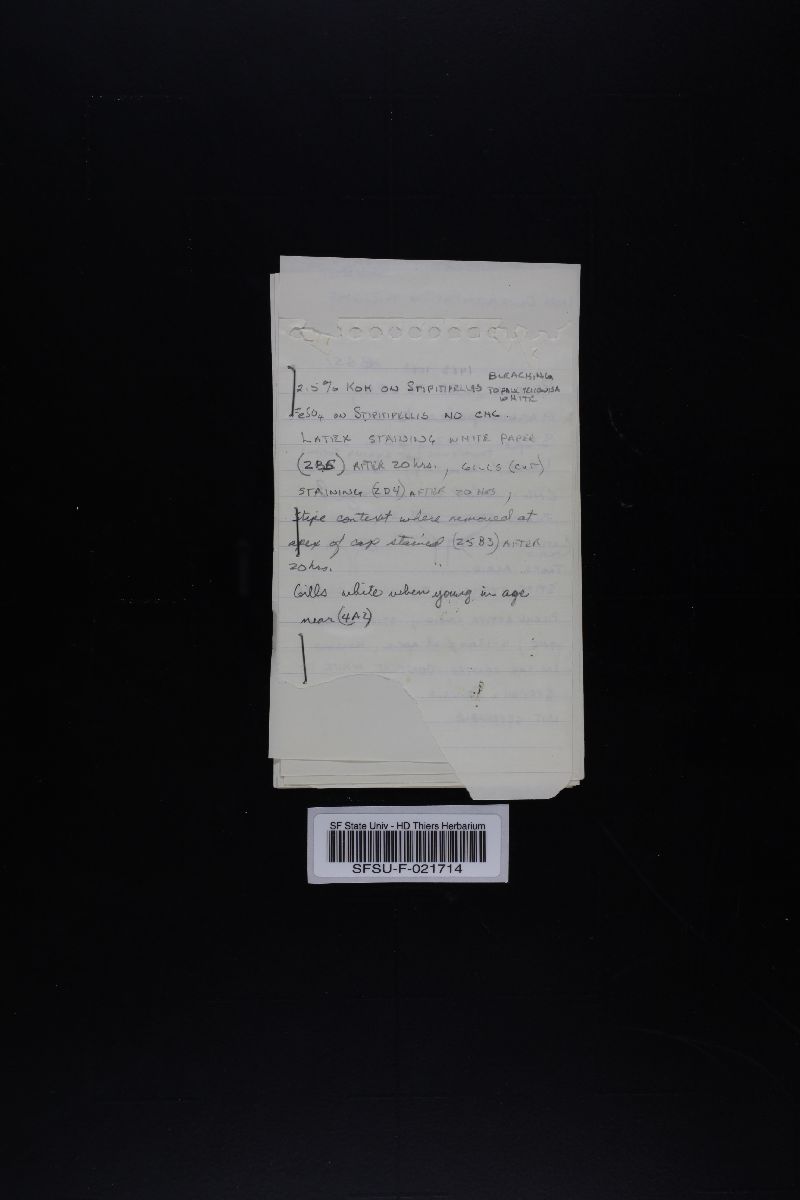 2.5% KOH ON STIPITIPELLIS BLEACHING TO PALE YELLOWISH WHITE
FeSO4 ON STIPITIPELLIS NO CHG.
LATEX STAINING WHITE PAPER
AFTER 20 hrs., GILLS (CUT)
STAINING (2D4) AFTER 20 HRS,
Stipe context where removed at
apex of cap stained (25B3) AFTER
20 hrs.
Gills white when young in age
near (4A2)
SF State Univ - HD Thiers Herbarium
SFSU-F-021714